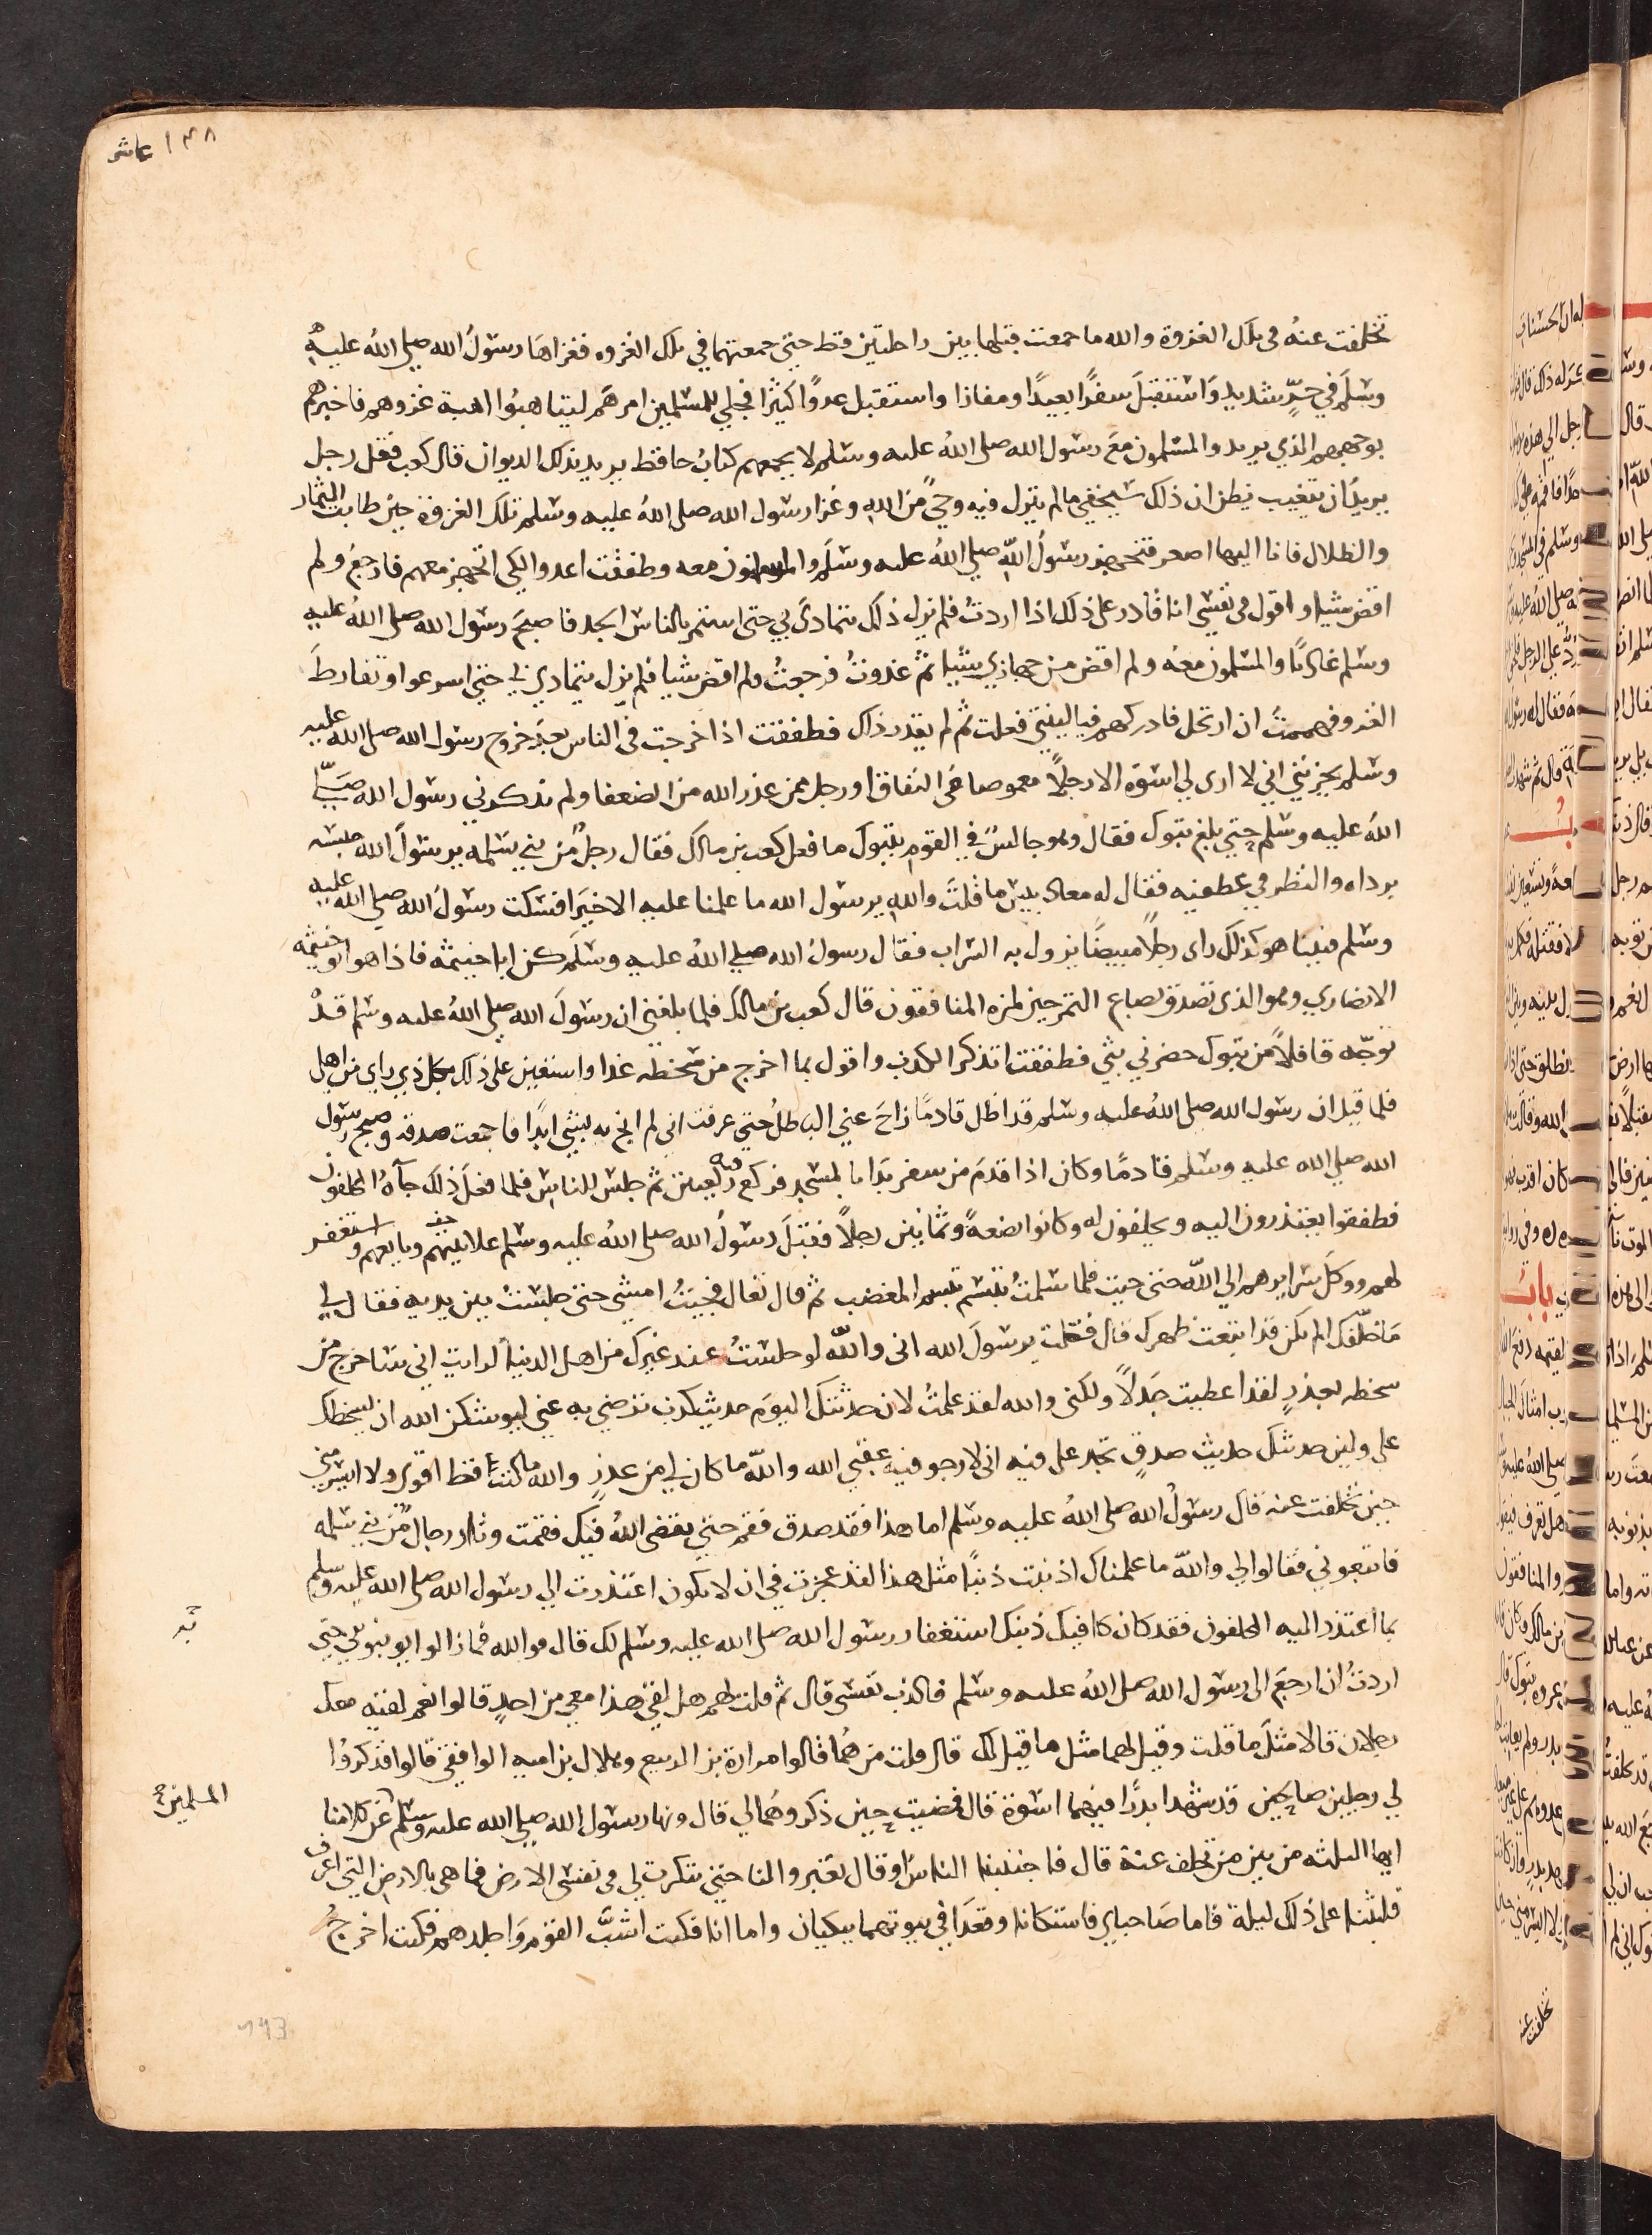 ١٤٨ عاشر
تخلفت عنه في تلك الغزوة والله ما جمعت قبلها بين راحلتين قط حتى جمعتهما في تلك الغزوه فغزاها رسول الله صلى الله عليه
وسلم في حرٍّ شديد واستقبل سفرًا بعيدًا ومفازا واستقبل عدوًا كثيرًا فجلي للمسلمين امرهم ليتاهبوا اهبة غزوهم فاخبرهم
بوجههم الذي يريد والمسلمون مع رسول الله صلى الله عليه وسلم لا يجمعهم كتاب حافظ يريد بذلك الديوان قال كعب فقل رجل
يريد ان يتغيب يظن ان ذلك سيخفي ما لم ينزل فيه وحيٌ من الله وغزا رسول الله صلى الله عليه وسلم تلك الغزوة حين طابت الثمار
والظلال فانا اليها اصعر فتجهز رسول الله صلى الله عليه وسلم والمسلمون معه وطفقت اغدوا لكي اتجهز معهم فارجع ولم
اقض شيا واقول في نفسي انا قادر على ذلك اذا اردت فلم يزل ذلك يتمادى بي حتى استمر بالناس الجد فاصبح رسول الله صلى الله عليه
وسلم غاديًا والمسلمون معه ولم اقض من جهازي شيا ثم غدوت فرجعت ولم اقض شيا فلم يزل يتمادى بي حتى اسرعوا وتفارط
الغزو فهممت ان ارتحل فادركهم فيا ليتني فعلت ثم لم يقدر ذاك فطفقت اذا خرجت في الناس بعد خروج رسول الله صلى الله عليه
وسلم يحزنني اني لا ارى لي اسوة الا رجلاً مغموصا في النفاق او رجل ممن عذر الله من الضعفا ولم يذكرني رسول الله صلى
الله عليه وسلم حتى بلغ تبوك فقال وهو جالس في القوم بتبوك ما فعل كعب بن مالك فقال رجل من بني سلمه يرسول الله حبسه
برداه والنظر في عطفيه فقال له معاذ بيس ما قلت والله يرسول الله ما علمنا عليه الا خيرا فسكت رسول الله صلى الله عليه
وسلم فبينا هو كذلك راى رجلاً مبيضًا يزول به السراب فقال رسول الله صلى الله عليه وسلم كن ابا خيثمة فاذا هو ابو خيثمه
الانصاري وهو الذي تصدق بصاع التمر حين لمزه المنافقون قال كعب بن مالك فلما بلغني ان رسول الله صلى الله عليه وسلم قد
توجه قافلاً من تبوك حضرني بثي فطفقت اتذكر الكذب واقول بما اخرج من سخطه غدا واستعين على ذلك بكل ذي راي من اهلي
فلما قيل ان رسول الله صلى الله عليه وسلم قد اظل قادمًا زاح عني الباطل حتى عرفت اني لم انج منه بشي ابدًا فاجمعت صدقه وصبح رسول
الله صلى الله عليه وسلم قادمًا وكان اذا قدم من سفر بدا بالمسجد فركع فيه ركعتين ثم جلس للناس فلما فعل ذلك جآه المخلفون
فطفقوا يعتذرون اليه ويحلفون له وكانوا بضعةً وثمانين رجلاً فقبل رسول الله صلى الله عليه وسلم علانيتهم وبايعهم واستغفر
لهم ووكل سرايرهم الي الله حتى جيت فلما سلمت تبسم تبسم المغضب ثم قال تعال فجيت امشي حتى جلست بين يديه فقال لي
ما خلفك الم تكن قد ابتعت ظهرك قال فقلت يرسول الله اني والله لو جلست عند غيرك من اهل الدنيا لرايت اني ساخرج من
سخطه بعذرٍ لقد اعطيت جدلاً ولكني والله لقد علمت لان حدثتك اليوم حديث كذب ترضي به عني ليوشكن الله ان يسخطك
علي ولين حدثتك حديث صدقٍ تجد علي فيه اني لارجو فيه عقبي الله والله ما كان لي من عذرٍ والله ما كنت قط اقوى ولا ايسر مني
حين تخلفت عنه قال رسول الله صلى الله عليه وسلم اما هذا فقد صدق فقم حتى يقضي الله فيك فقمت وثار رجال من بني سلمه
فاتبعوني فقالوا لي والله ما علمناك اذنبت ذنبًا مثل هذا لقد عجزت في ان لا يكون اعتذرت الي رسول الله صلى الله عليه وسلم
بما اعتذر اليه المخلفون فقد كان كافيك ذنبك استغفار رسول الله صلى الله عليه وسلم لك قال فوالله فما زالوا يونبوني حتى
اردت ان ارجع الى رسول الله صلى الله عليه وسلم فاكذب نفسي قال ثم قلت لهم هل لقي هذا معي من احدٍ قالوا نعم لقيه معك
رجلان قالا مثل ما قلت وقيل لهما مثل ما قيل لك قال قلت من هما قالوا مرارة بن الربيع وهلال بن اميه الواقفي قالوا فذكروا
لي رجلين صالحين قد شهدا بدرًا فيهما اسوة قال فمضيت حين ذكروهما لي قال ونهي رسول الله صلى الله عليه وسلم عن كلامنا
المسلمين صح
ايها الثلثه من بين من تخلف عنه قال فاجتنبنا الناس او قال تغيروا لنا حتى تنكرت لي في نفسي الارض فما هي بالارض التي اعرف
فلبثنا على ذلك ليلة فاما صاحباي فاستكانا وقعدا في بيوتهما يبكيان واما انا فكنت اشب القوم واجلدهم فكنت اخرج